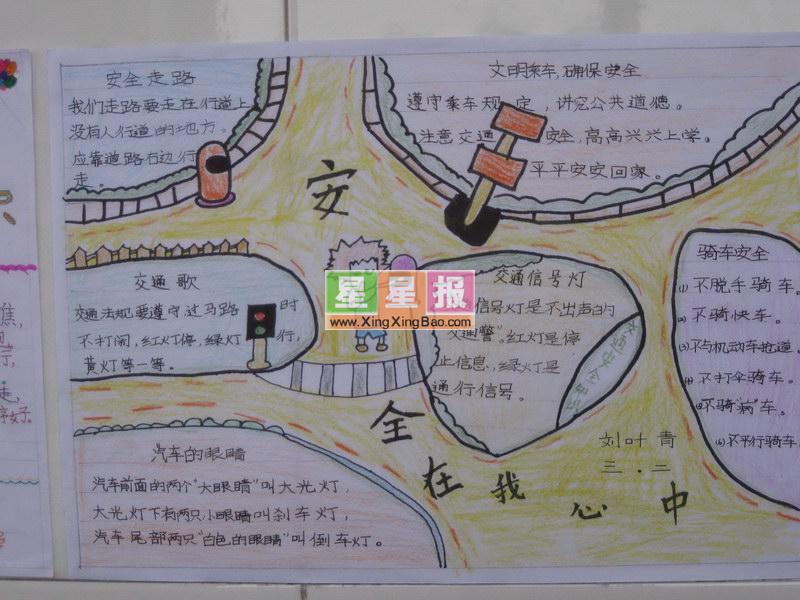 安全走路
我们走路要走在行道上
没有人行道的地方。
应靠道路右边行
走.
文明乘车,确保安全
遵守乘车规定,讲究公共道德。
注意交通安全,高高兴兴上学。
平平安安回家。
安
全
在
我
心
中
交通歌
交通法规要遵守,过马路时
不打闹,红灯停,绿灯行,
黄灯等一等。
星星报
www.XingXingBao.com
交通信号灯
信号灯是不出声的
交通警”。红灯是停
止信息,绿灯是
通行信号。
交通安全知识
骑车安全
(1)不脱手骑车。
(2)不骑快车。
(3)不与机动车抢道。
(4)不打伞骑车。
(5)不骑“病”车。
(6)不平行骑车。
刘叶青
三.二
汽车的眼睛
汽车前面的两个“大眼睛”叫大光灯,
大光灯下有两只小眼睛叫刹车灯,
汽车尾部两只“白色的眼睛”叫倒车灯。